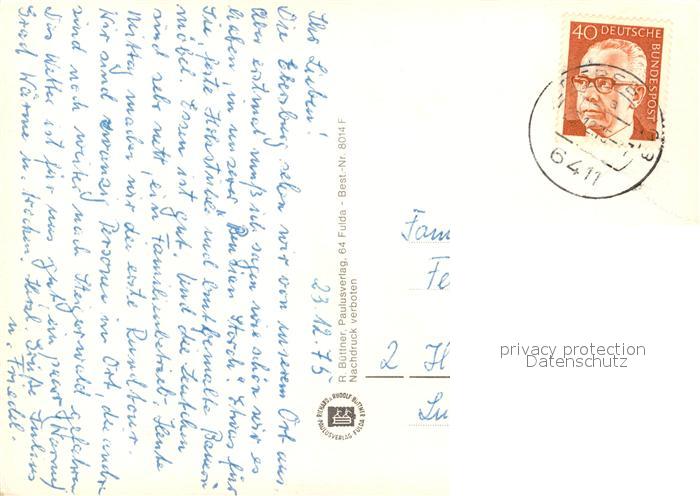 Ihr Lieben!
Die Ebersburg sehn wir von unserem Ort aus.
Aber erstmal muß ich sagen wie schön wir es
haben, in unserer Pension Storch. Etwas für
Sie, feste Holzstühle und bemalte Bauern
möbel. Essen ist gut. Und die Leutchen
sind sehr nett, ein Familienbetrieb. Heute
Mittag machen wir die erste Rundtour.
Wir sind zwanzig Personen im Ort, die andern
sind noch weiter nach Steigerwald gefahren
Das Wetter ist für uns gut ein paar (Wenig)
Grad Wärme u. trocken. Herzl. Grüße
u. Friedel.
23.12.75
R. Büttner, Paulusverlag, 64 Fulda - Best.-Nr. 8014 F
Nachdruck verboten
RICHARD & RUDOLF BÜTTNER
PAULUSVERLAG FULDA
40 DEUTSCHE
BUNDESPOST
6411
Fam
Fe
2 H
Lu
privacy protection
Datenschutz